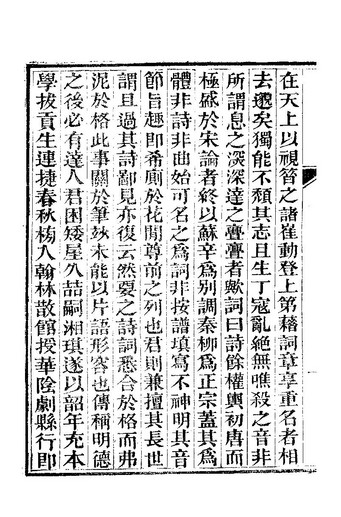 在天上以視管之諸崔動登上第藉詞章享重名者相
去遼矣獨能不頹其志且生丁寇亂絕無噍殺之音非
所謂息之深深達之亹亹者歟詞曰詩餘權輿初唐而
極盛於宋論者終以蘇辛為別調秦柳為正宗蓋其為
體非詩非曲始可名之為詞非按譜填寫不神明其音
節旨趣即希廁於花間尊前之列也君則兼擅其長世
謂且過其詩鄙見亦復云然要之詩詞悉合於格而弗
泥於格此事關於筆妙未能以片語形容也傳稱明德
之後必有達人君困矮屋久喆嗣湘琪遂以韶年充本
學拔貢生連捷春秋榜入翰林散館授華陰劇縣行即